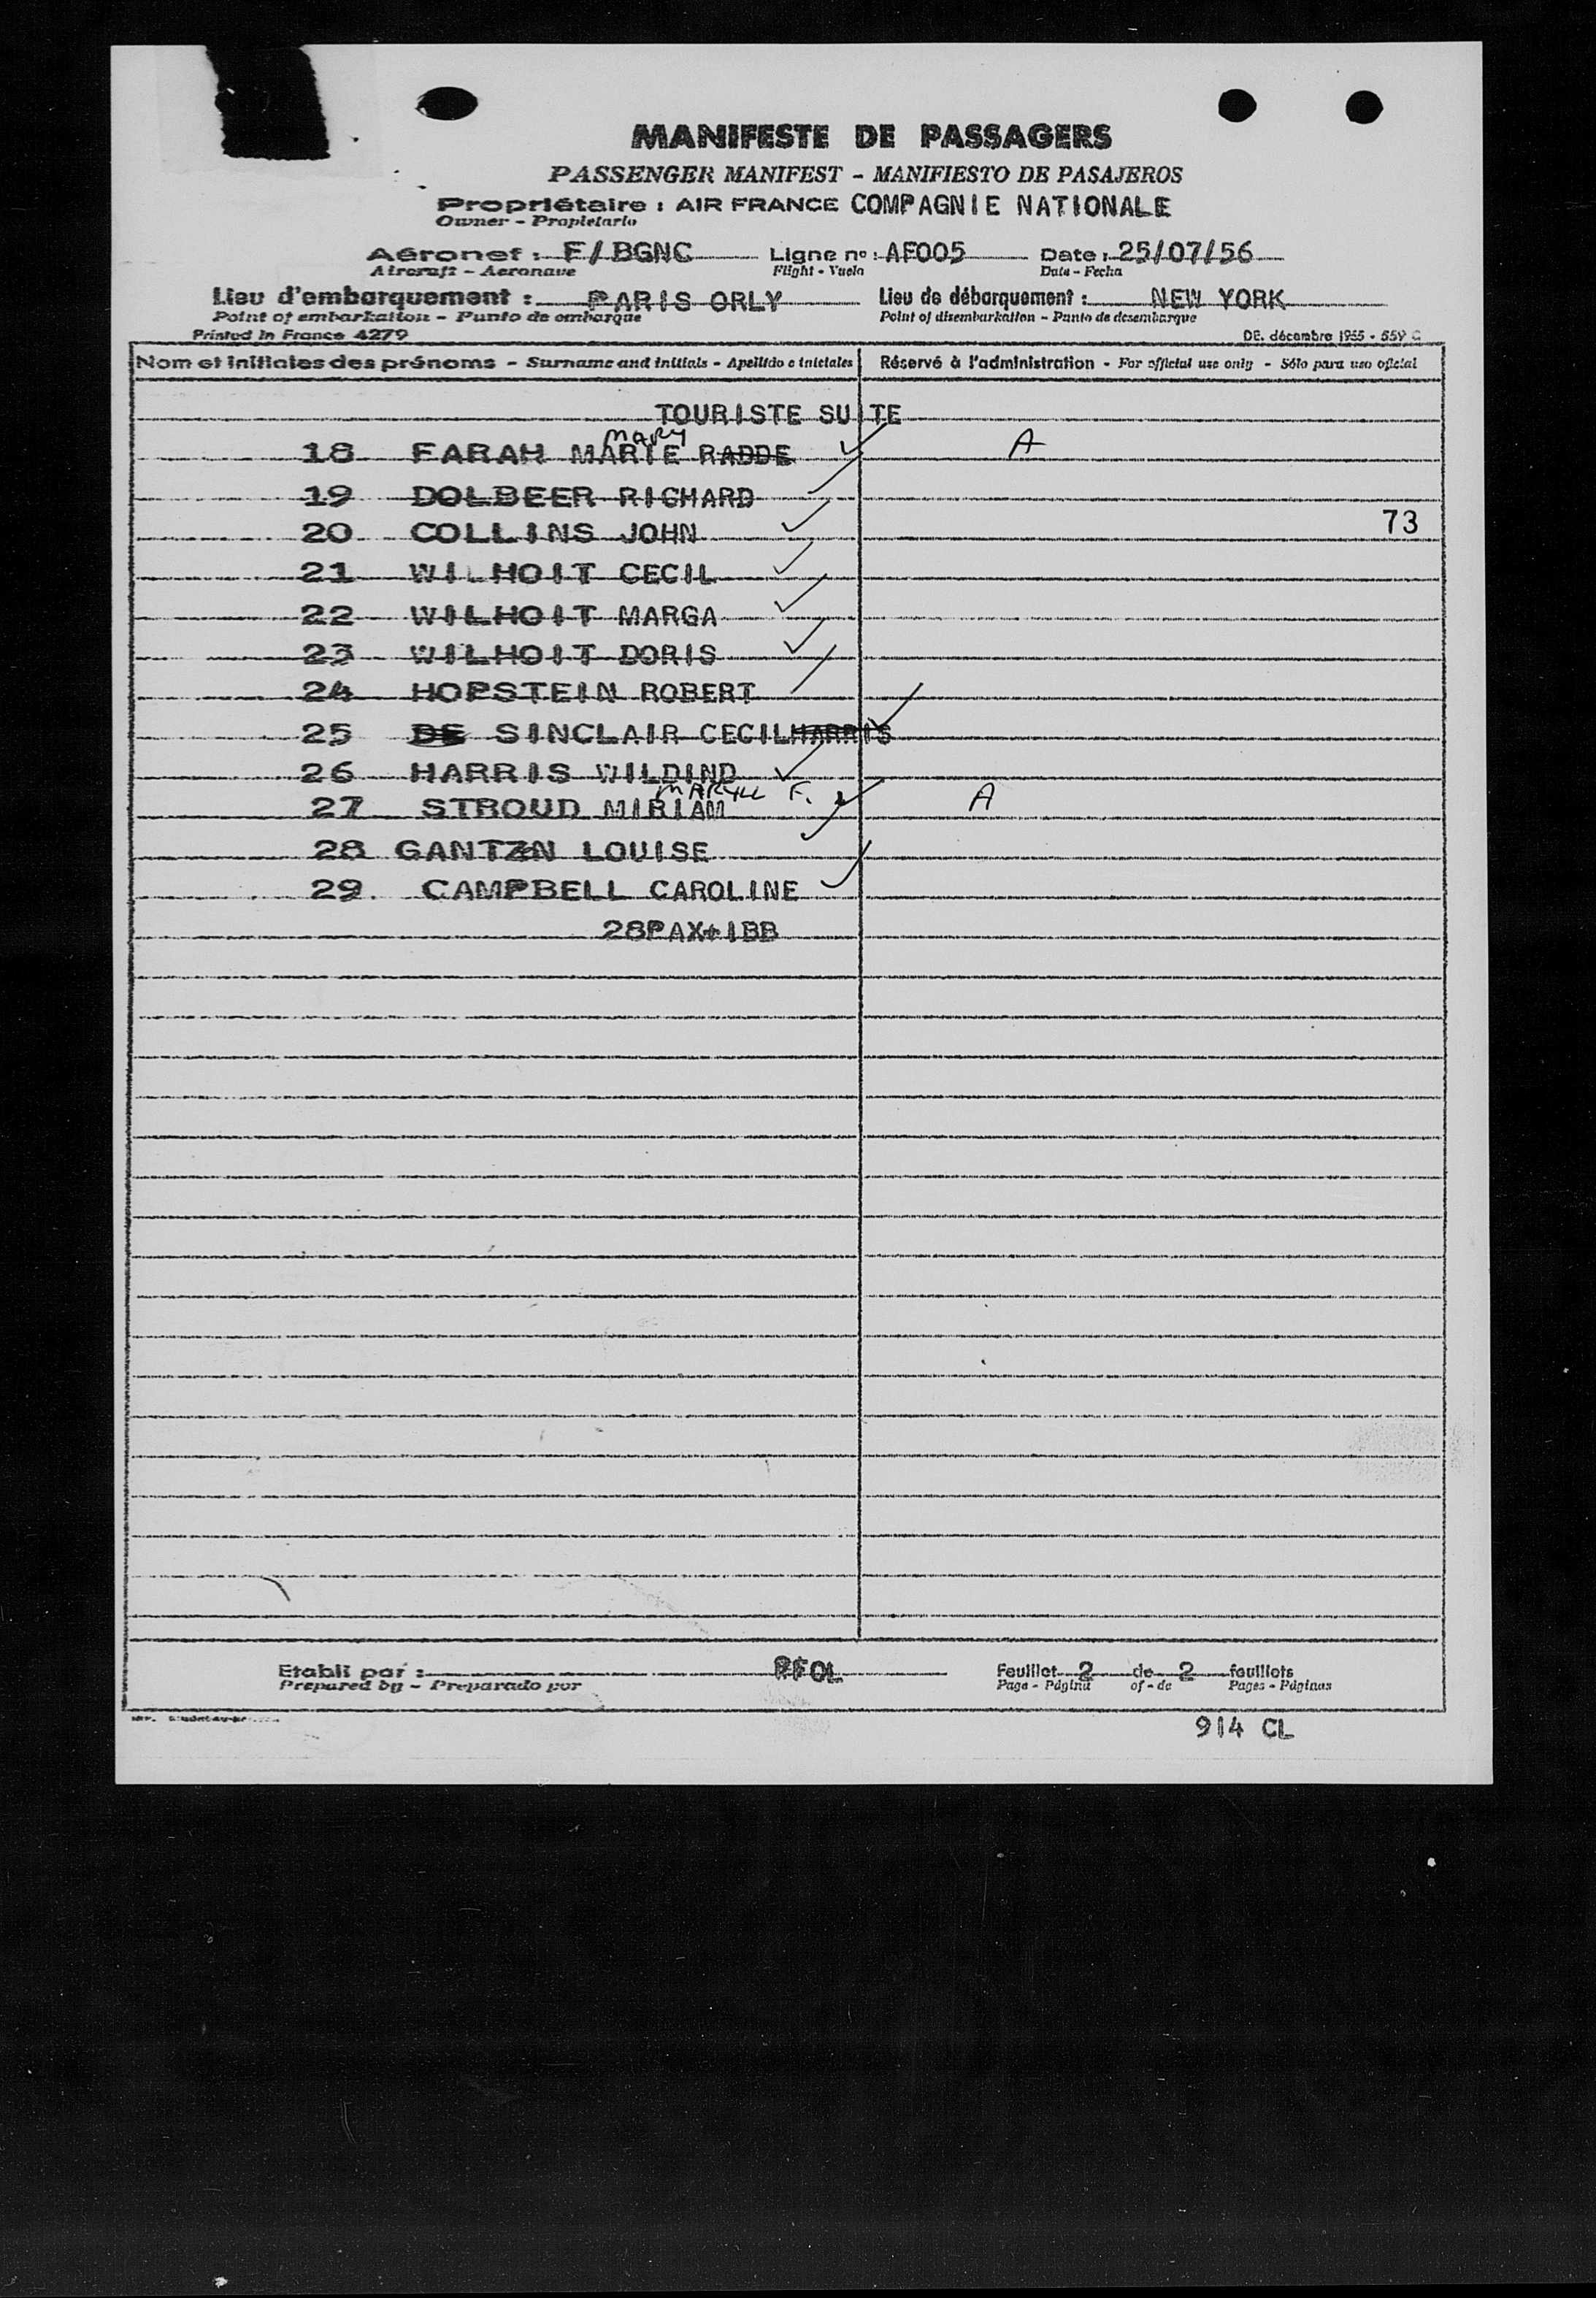 MANIFESTE DE PASSAGERS
PASSENGER MANIFEST - MANIFIESTO DE PASAJEROS
Propriétaire : AIR FRANCE COMPAGNIE NATIONALE
Owner - Propietario
Aéronef : F/BGNC Ligne nº : AF005 Date : 25/07/56
Aircraft - Aeronave Flight - Vuelo Date - Fecha
Lieu d'embarquement : PARIS ORLY Lieu de débarquement : NEW YORK
Point of embarkation - Punto de embarque Point of disembarkation - Punto de desembarque
Printed in France 4279 DE. décembre 1955 - 559 C
Nom et initiales des prénoms - Surname and initials - Apellido e iniciales Réservé à l'administration - For official use only - Sólo para uso oficial
TOURISTE SUITE
MARY
18 FARAH MARIE RADDE A
19 DOLBEER RICHARD
20 COLLINS JOHN 73
21 WILHOIT CECIL
22 WILHOIT MARGA
23 WILHOIT DORIS
24 HOPSTEIN ROBERT
25 DE SINCLAIR CECILHARRIS
26 HARRIS WILDIND
F.
27 STROUD MIRIAM A
28 GANTZN LOUISE
29 CAMPBELL CAROLINE
28PAX+1BB
Etabli par : PFOL Feuillet 2 de 2 feuillets
Prepared by - Preparado por Page - Página of - de Pages - Páginas
914 CL